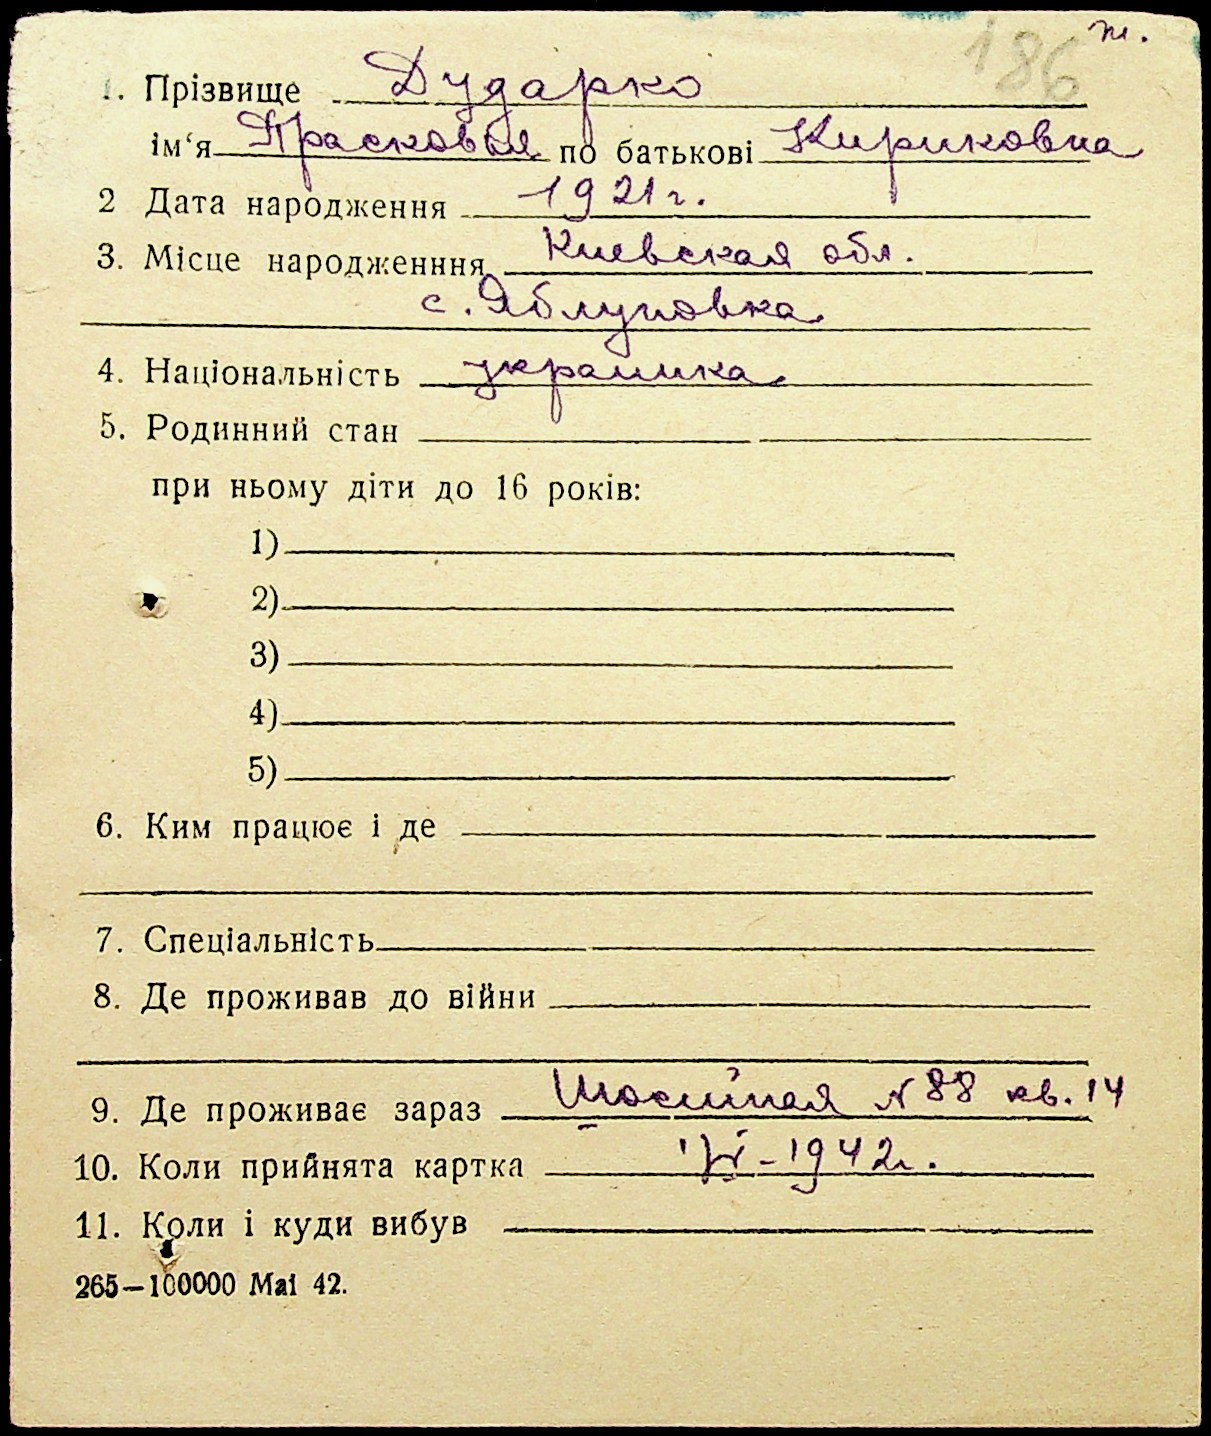 186 т.
1. Прізвище Дударко
ім‘я Прасковья по батькові Кириковна
2 Дата народження 1921 г.
3. Місце народженння Киевская обл.
с. Яблуновка
4. Національність украинка
5. Родинний стан
при ньому діти до 16 років:
1)
2)
3)
4)
5)
6. Ким працює і де
7. Спеціальність
8. Де проживав до війни
9. Де проживає зараз N 88 кв. 14
10. Коли прийнята картка 1942 г.
11. Коли і куди вибув
265—100000 Маі 42.